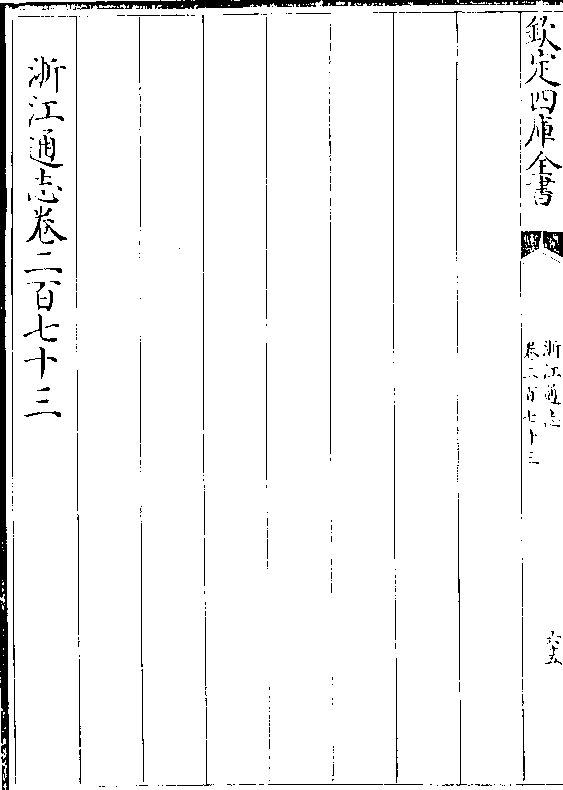 欽定四庫全書
浙江通志
卷二百七十三
六十五
浙江通志卷二百七十三